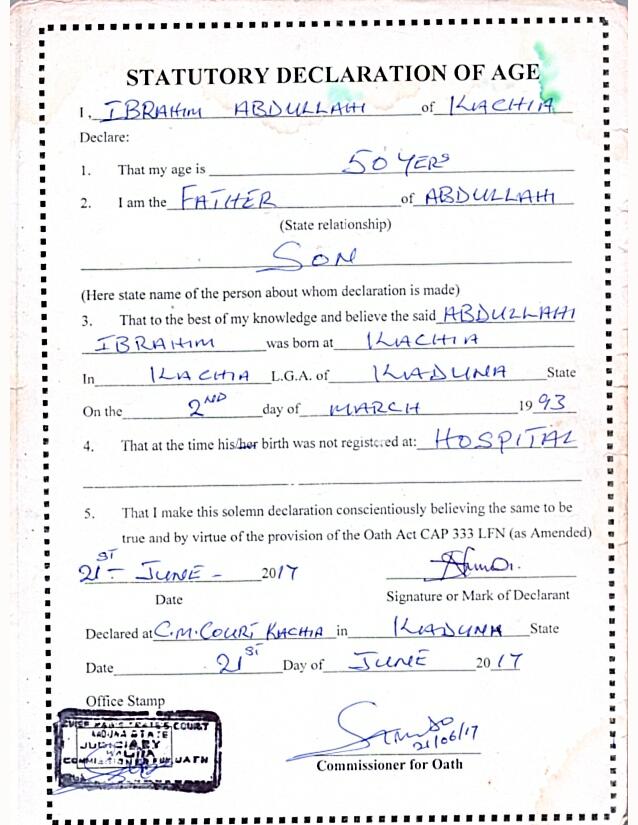 STATUTORY DECLARATION OF AGE
I, IBRAHIM ABDULLAHI of KACHIA
Declare:
1. That my age is 50 YERS
2. I am the FATHER of ABDULLAHI
(State relationship)
SON
(Here state name of the person about whom declaration is made)
3. That to the best of my knowledge and believe the said ABDULLAHI
IBRAHIM was born at KACHIA
In KACHIA L.G.A. of KADUNA State
On the 2ND day of MARCH 1993
4. That at the time his/her birth was not registered at: HOSPITAL
5. That I make this solemn declaration conscientiously believing the same to be
true and by virtue of the provision of the Oath Act CAP 333 LFN (as Amended)
21ST - JUNE - 2017
Date Signature or Mark of Declarant
Declared at C.M.COURT KACHIA in KADUNA State
Date 21ST Day of JUNE 2017
Office Stamp
CHIEF MAGISTRATES COURT
KADUNA STATE
JUDICIARY
COMMISSIONER FOR OATH
21/06/17
Commissioner for Oath